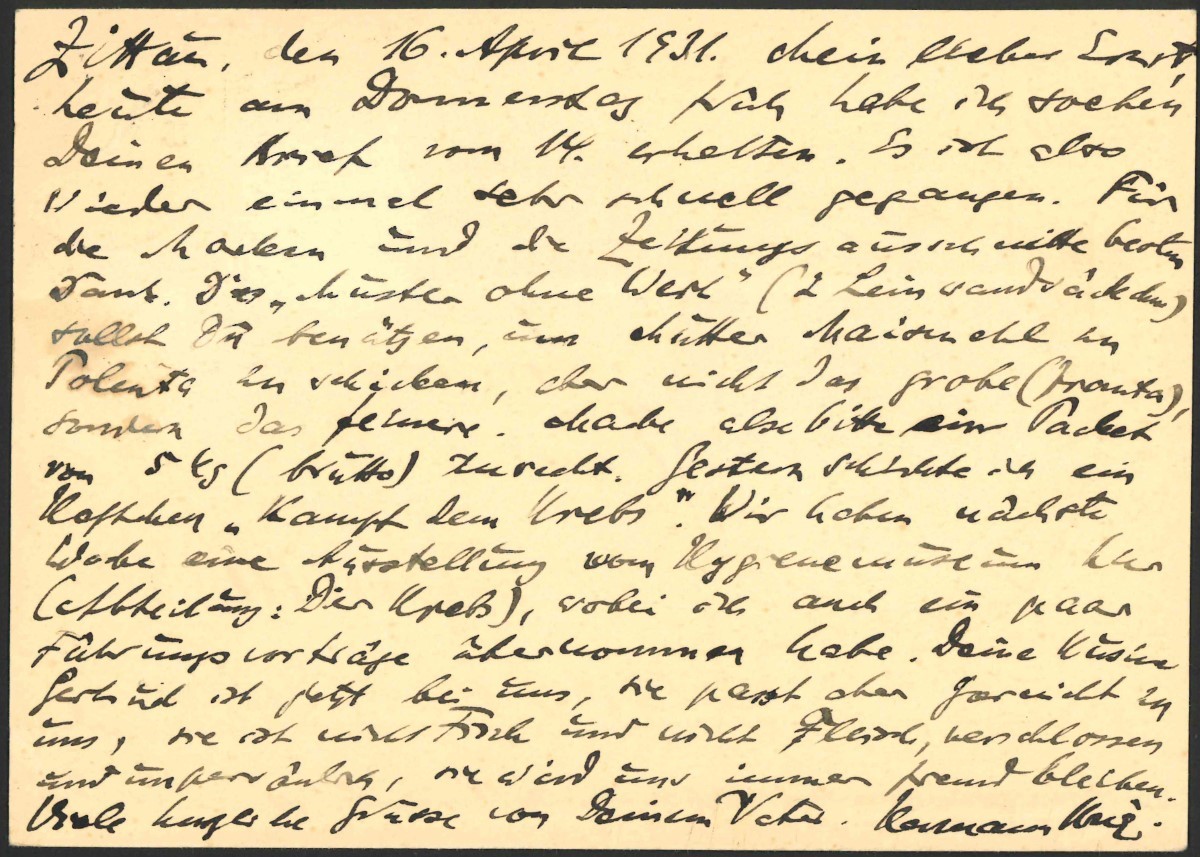 Zittau, den 16. April 1931. Mein lieber Ernst,
heute am Donnerstag früh habe ich soeben
Deinen Brief vom 14. erhalten. Es ist also
wieder einmal sehr schnell gegangen. Für
die Marken und die Zeitungsausschnitte besten
Dank. Das „Muster ohne Wert" (2 Leinwandsäckchen)
sollst Du benützen, um Mutter Maismehl zu
Polenta zu schicken, aber nicht das grobe
sondern das feinere. Mache also bitte ein Packet
von 5 kg (brutto) zurecht. Gestern schickte ich ein
Heftchen „Kampf dem Krebs". Wir haben nächste
Woche eine Ausstellung vom Hygienemuseum hier
(Abteilung: Der Krebs), wobei ich auch ein paar
Führungsvorträge übernommen habe. Deine Kusine
Gertrud ist jetzt bei uns, sie passt aber garnicht zu
uns, sie ist nicht Fisch und nicht Fleisch, verschlossen
und unpersönlich, sie wird uns immer fremd bleiben.
Viele herzliche Grüsse von Deinem Vater. Hermann